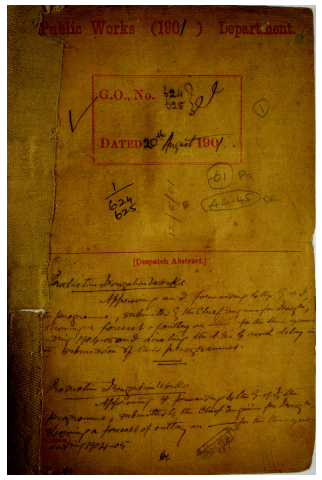 Public Works (1901) Department.
G.O., No. 624
625
①
DATED 20th August 1901.
1
624
625
61 Pa
[Despatch Abstract.]
Productive Irrigation Works
Approving and forwarding to the G. of I.
programme, submitted by the Chief Engineer for Irrigation,
showing a forecast of outlay on for the three years
ending 1904-05 and the delay in
submission of these programmes.
Productive Irrigation Works
Approving & forwarding to the G. of I. the
programme, submitted by the Chief Engineer for Irrigation,
showing a forecast of outlay on for the three years
ending 1904-05